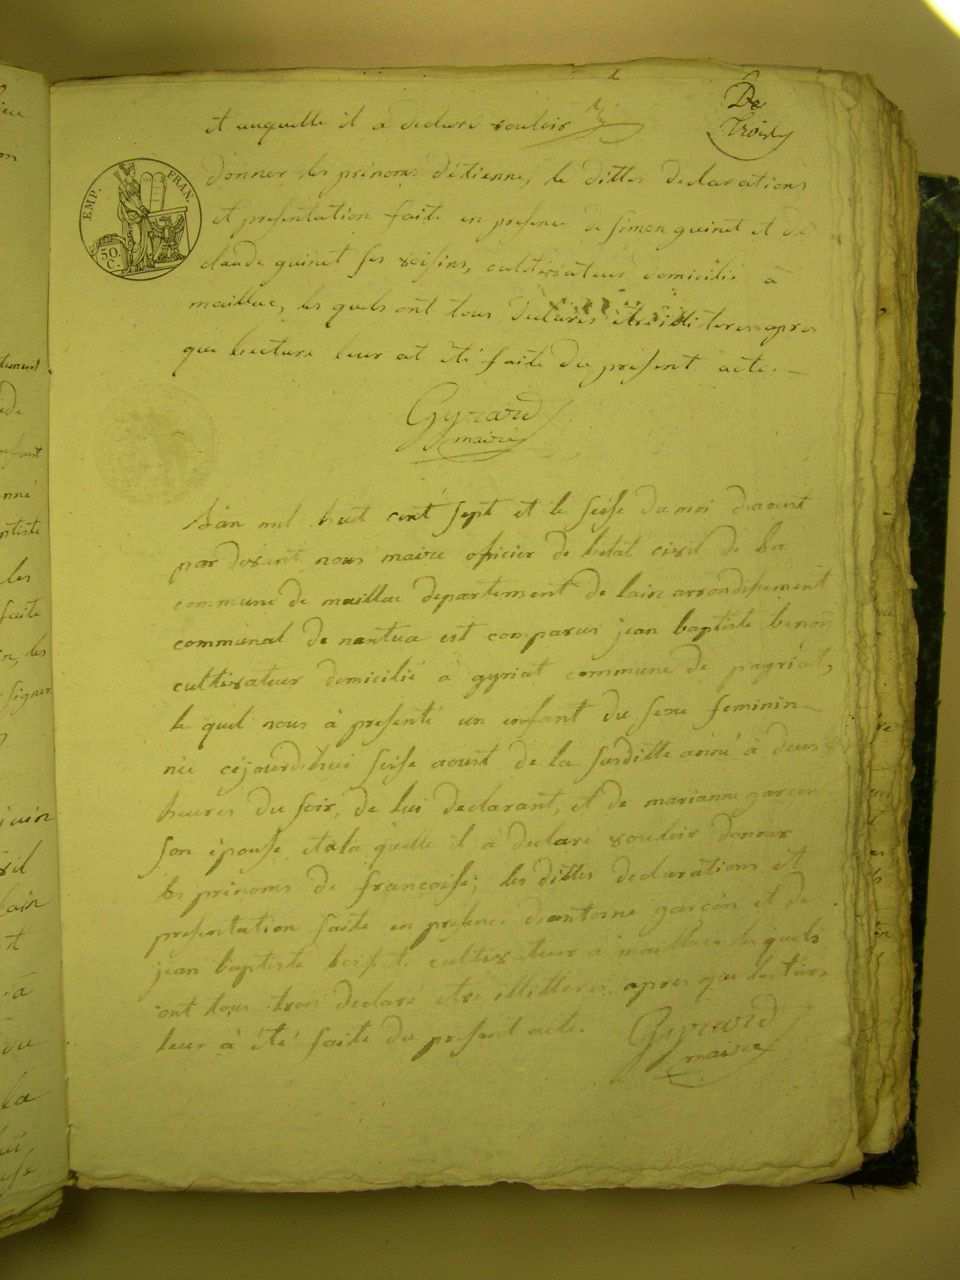 De
Trois
et auquelle il a declaré vouloir
EMP. FRAN.
50. C.
donner les prenoms d'etienne, le dittes declarations
et presentation faite en presence de simon guinet et de
claude guinet ses voisins, cultivateurs domicilié à
maillac, les quels ont tous declarés etre illiteres apres
que lecture leur at été faite du present acte.
Gyrard
maire
L'an mil huit cent sept et le seise du moi d'aoust
par devant nous maire officier de l'etat civil de la
commune de maillac departement de lain arrondisement
communal de nantua est comparus jean baptiste benoit
cultivateur domicilié à gyriat commune de
le quel nous à presenté un enfant du sexe feminin
née cejourdhui seise aoust de la susditte année à deux
heures du soir, de lui declarant, et de marianne garcon
son epouse et a la quelle il à declaré vouloir donner
les prenoms de francoise; les dittes declarations et
presentation faite en presence d'antoine garcon et de
jean baptiste cultivateur à maillac les quels
ont tous trois declaré etre illitteres apres que lecture
leur à été faite du present acte.
Gyrard
maire